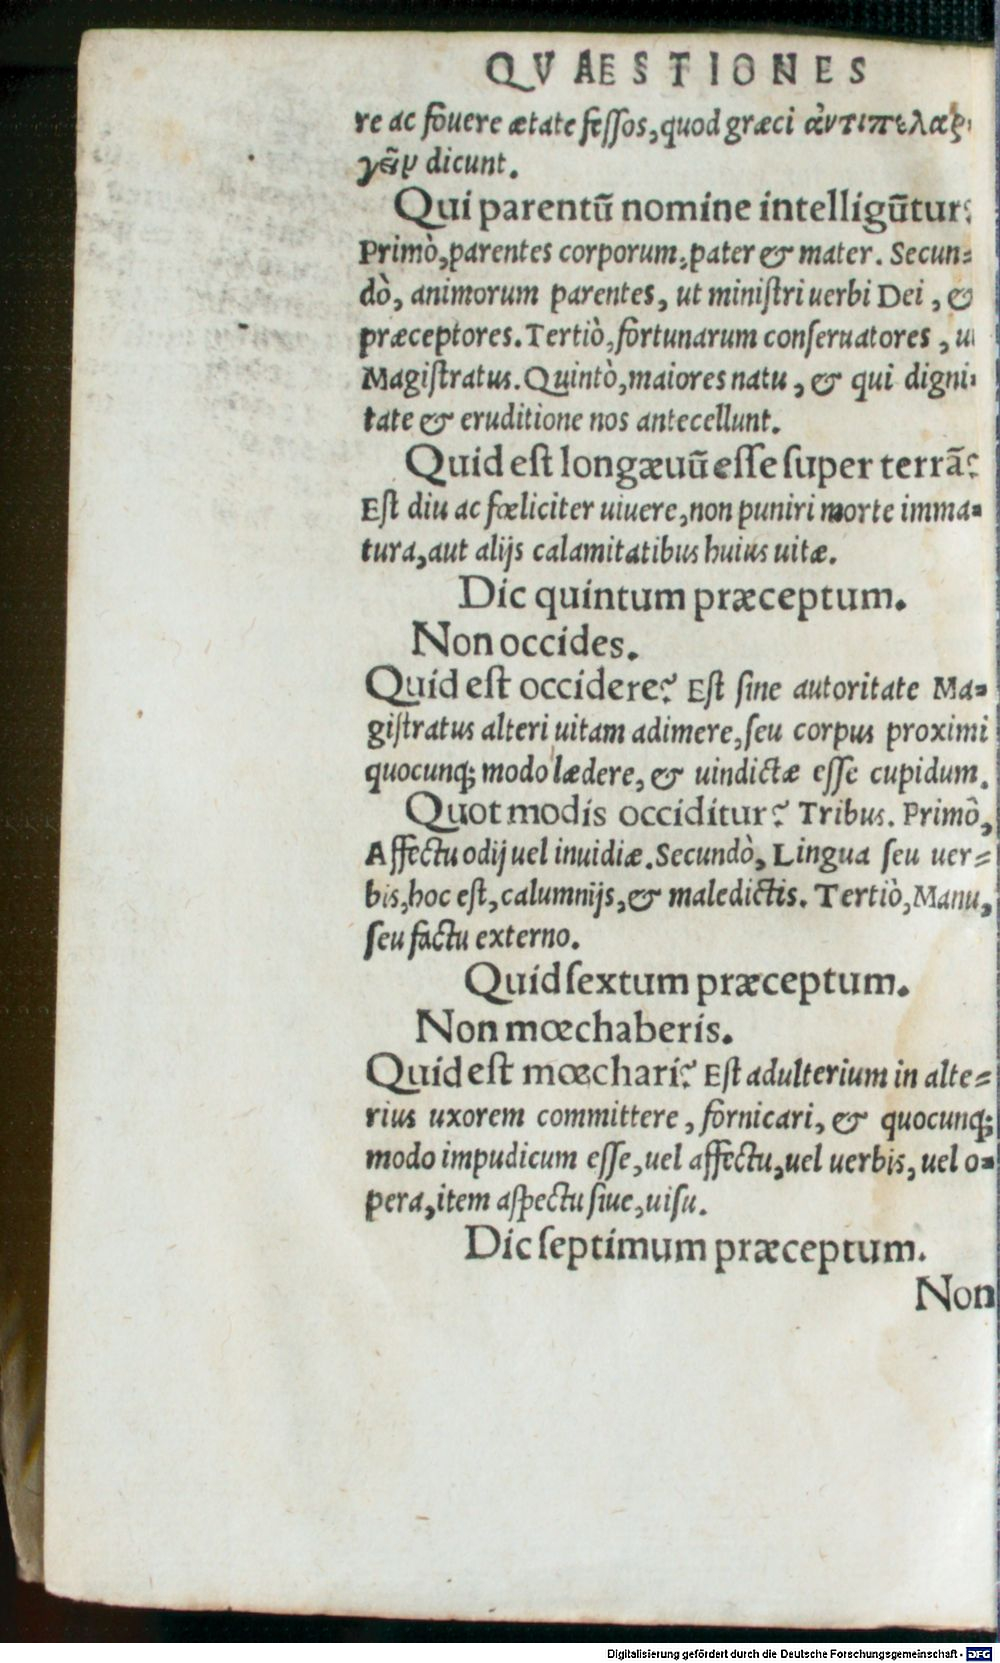 QVAESTIONES
re ac fouere ætate feſſos, quod græci ἀντιπελαρ-
γεῖν dicunt.
Qui parentũ nomine intelligũtur?
Primò, parentes corporum, pater & mater. Secun-
dò, animorum parentes, ut miniſtri uerbi Dei, &
præceptores. Tertiò, fortunarum conſeruatores, ut
Magiſtratus. Quintò, maiores natu, & qui digni-
tate & eruditione nos antecellunt.
Quid eſt longæuũ eſſe ſuper terrã?
Eſt diu ac fœliciter uiuere, non puniri morte imma-
tura, aut alijs calamitatibus huius uitæ.
Dic quintum præceptum.
Non occides.
Quid eſt occidere? Eſt ſine autoritate Ma-
giſtratus alteri uitam adimere, ſeu corpus proximi
quocunq; modo lædere, & uindictæ eſſe cupidum.
Quot modis occiditur? Tribus. Primò,
Affectu odij uel inuidiæ. Secundò, Lingua ſeu uer-
bis, hoc eſt, calumnijs, & maledictis. Tertiò, Manu,
ſeu factu externo.
Quid ſextum præceptum.
Non mœchaberis.
Quid eſt mœchari? Eſt adulterium in alte-
rius uxorem committere, fornicari, & quocunq;
modo impudicum eſſe, uel affectu, uel uerbis, uel o-
pera, item aſpectu ſiue, uiſu.
Dic ſeptimum præceptum.
Non
Digitalisierung gefördert durch die Deutsche Forschungsgemeinschaft - DFG